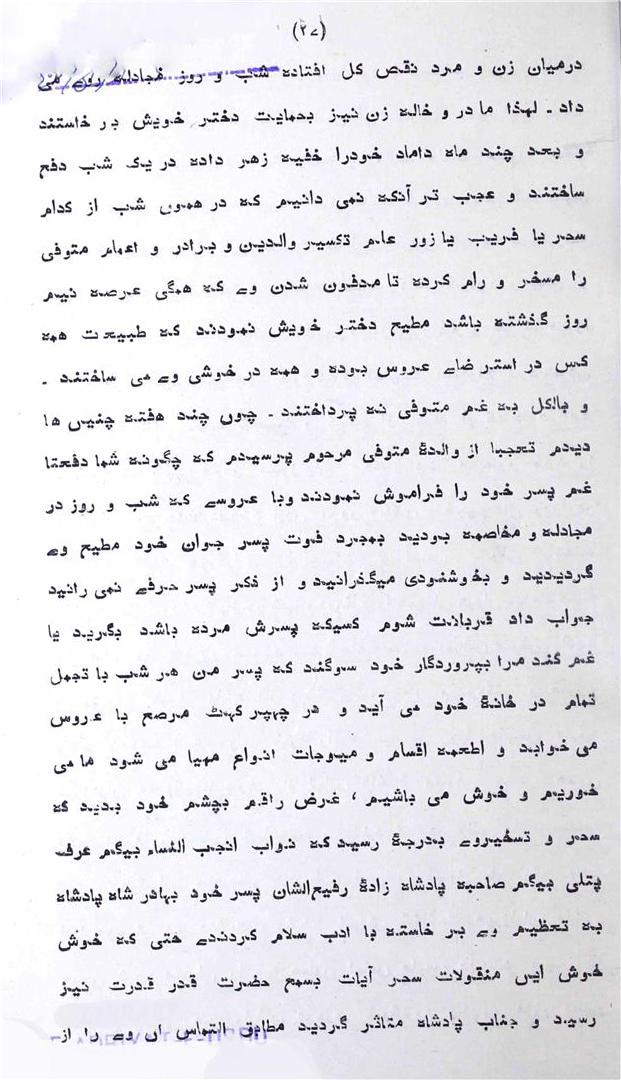 (۲۷)
درمیان زن و مرد نقص کل افتاده شب و روز مجادله روے می
داد ـ لهذا مادر و خاله زن نیز بحمایت دختر خویش بر خاستند
و بعد چند ماه داماد خودرا خفیه زهر داده در یک شب دفع
ساختند و عجب تر آنکه نمی دانیم که در همون شب از کدام
سحر یا فریب یا زور علم تکسیر والدین و برادر و اعمام متوفی
را مسخر و رام کرده تا مدفون شدن وے که همگی عرصه نیم
روز گذشته باشد مطیع دختر خویش نمودند که طبیعت همه
کس در استرضاے عروس بوده و همه در خوشی وے می ساختند ـ
و بالکل به غم متوفی نه پرداختند ـ چوں چند هفته چنیں ها
دیدم تعجبا از والدۀ متوفی مرحوم پرسیدم که چگونه شما دفعتا
غم پسر خود را فراموش نمودند وبا عروسے که شب و روز در
مجادله و مخاصمه بودید بمجرد فوت پسر جوان خود مطیع وے
گردیدید و بخوشنودی میگذرانید و از ذکر پسر حرفے نمی رانید
جواب داد قربانت شوم کسیکه پسرش مرده باشد بگرید یا
غم کند مرا بپروردگار خود سوگند که پسر من هر شب با تجمل
تمام در خانۀ خود می آید و در چپپر کهٹ مرصع با عروس
می خوابد و اطعمه اقسام و میوجات انواع مهیا می شود ما می
خوریم و خوش می باشیم ، غرض راقم بچشم خود بدید که
سحر و تسخیروے بدرجۀ رسید که نواب انجب النساء بیگم عرف
پتلی بیگم صاحبه پادشاه زادۀ رفیع الشان پسر خود بهادر شاه پادشاه
به تعظیم وے بر خاسته با ادب سلام کردندے حتی که خوش
خوش ایں منقولات سحر آیات بسمع حضرت قدر قدرت نیز
رسید و جناب پادشاه متاثر گردید مطابق التماس ان وے را از